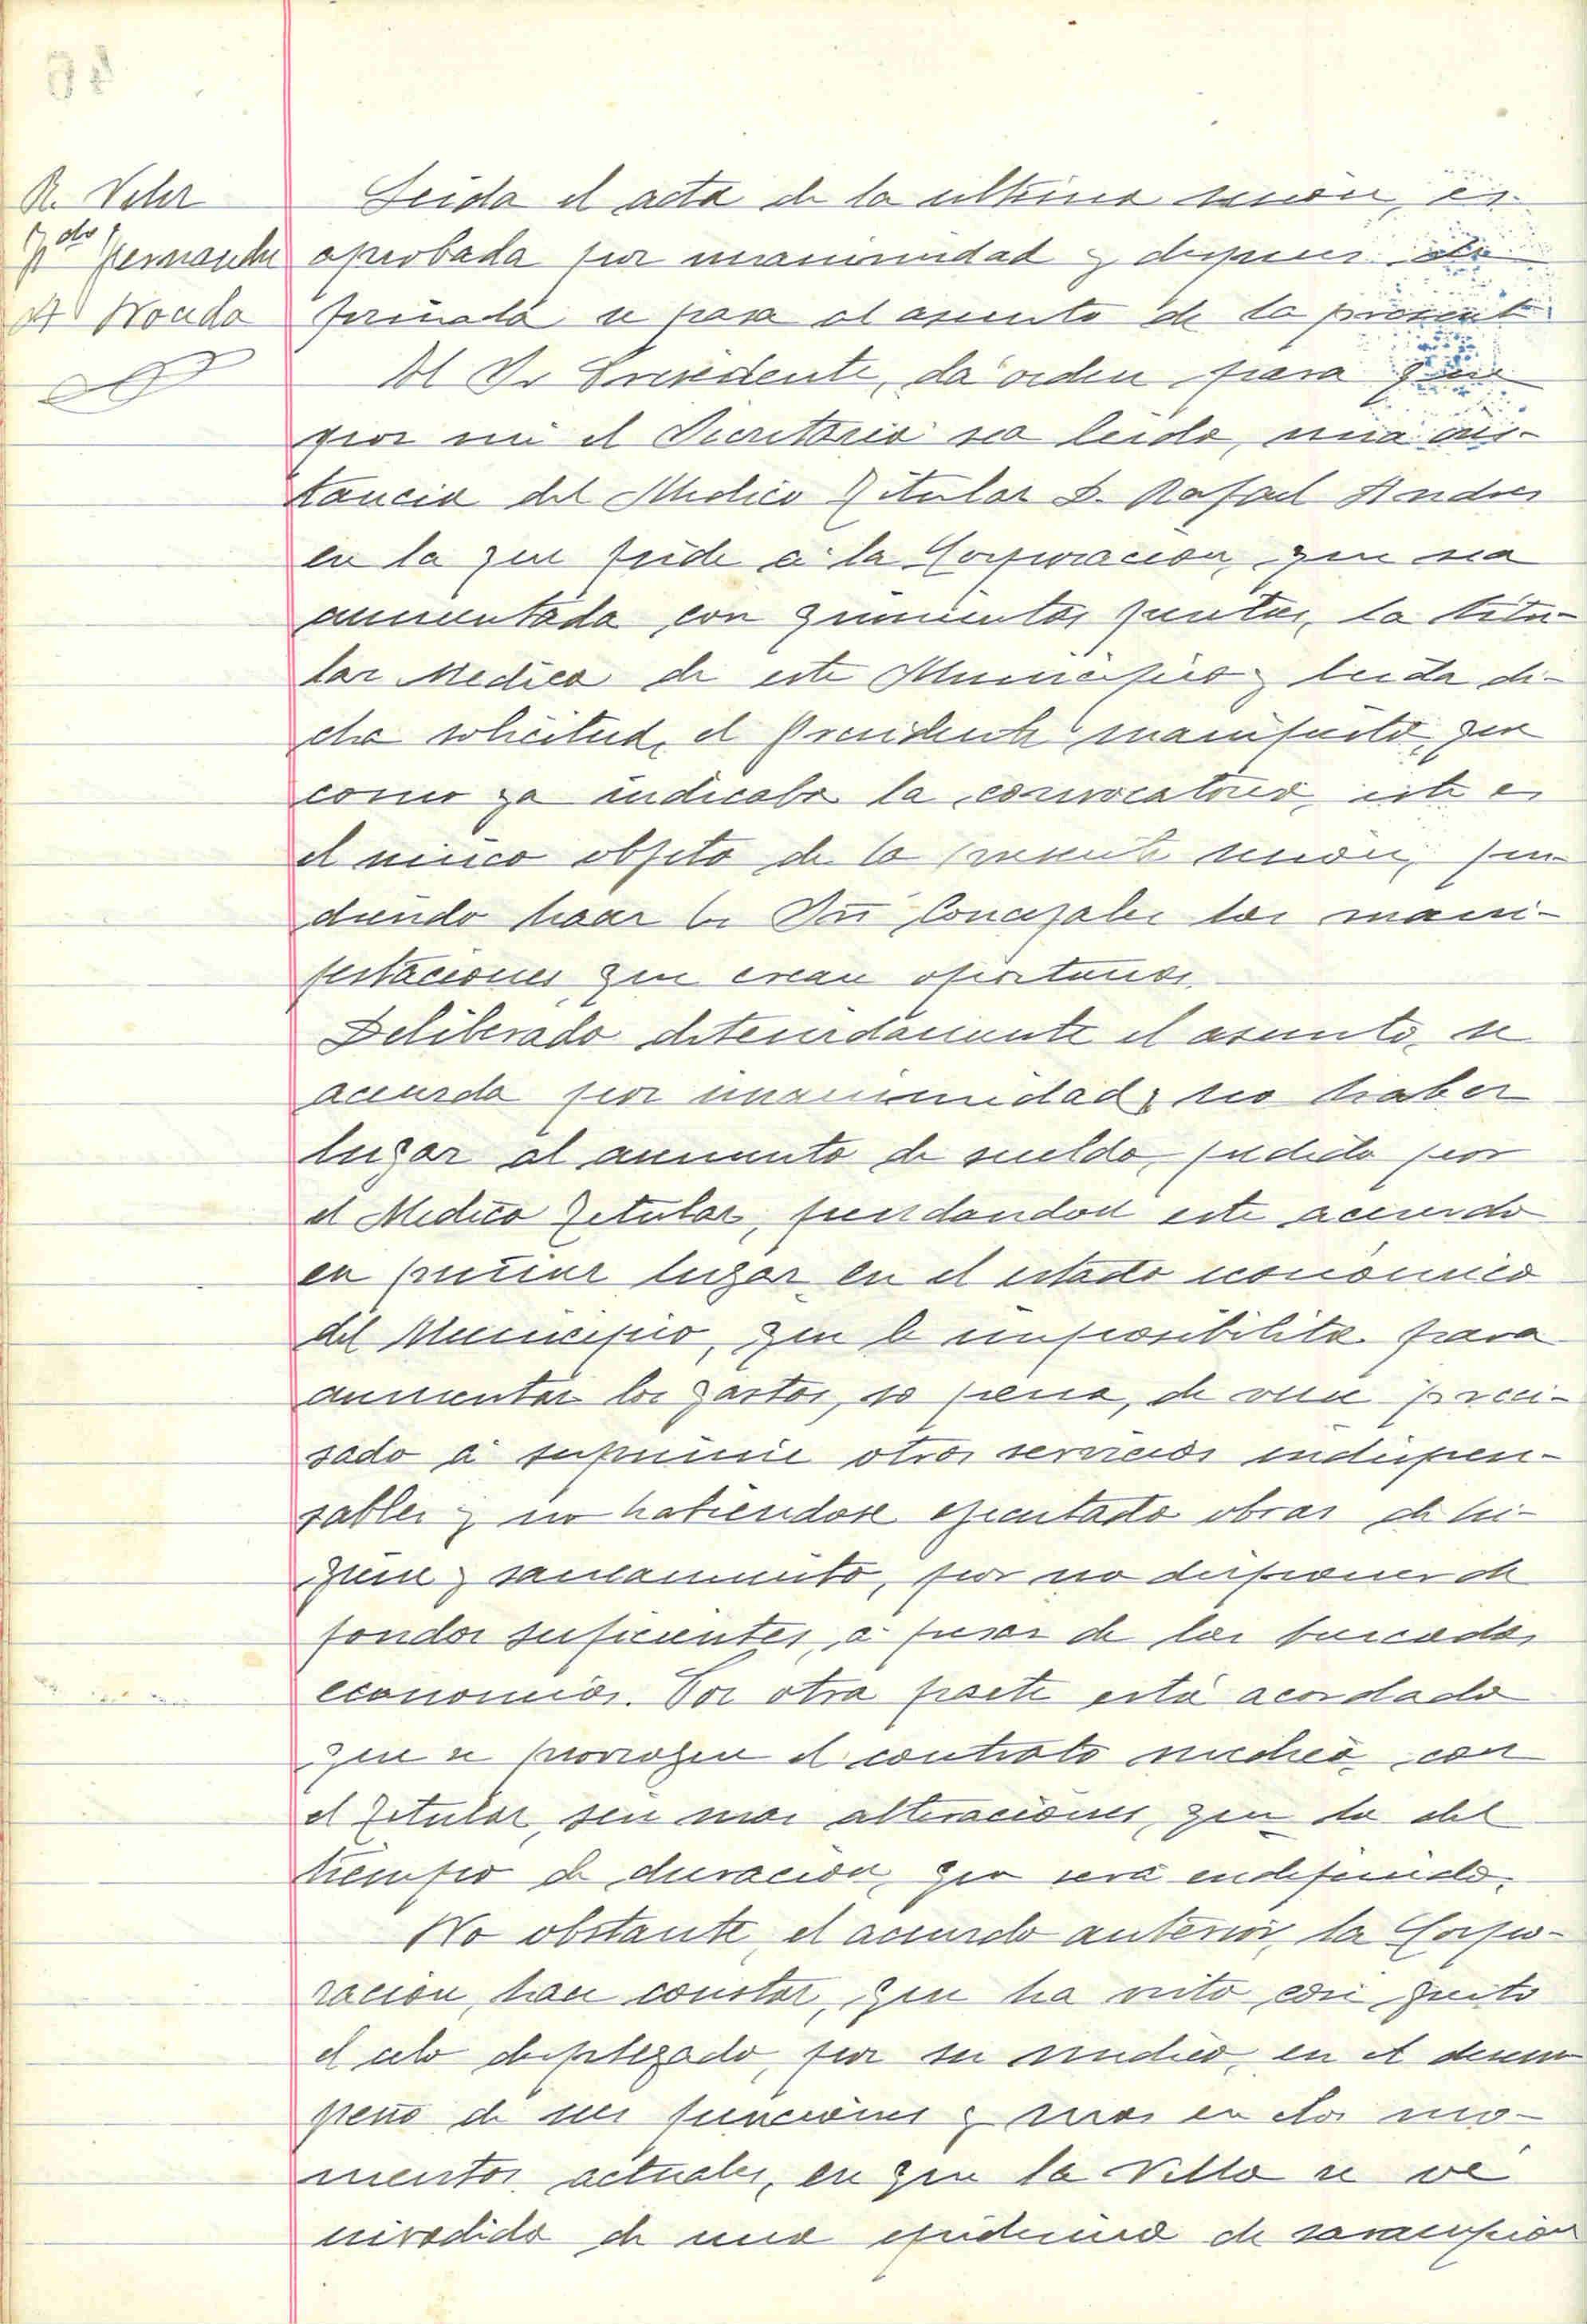 R. Vela
Fdo Fernandez
A Novoda
Leida el acta de la ultima sesión, es
aprobada por unanimidad y despues de
firmada se pasa al asunto de la presente
El Sr Presidente, da orden para que
por mi el Secretario sea leida, una ins-
tancia del Medico Titular D. Rafael Andres
en la que pide a la Corporacion, que sea
aumentada con quinientas pesetas, la titu-
lar Medica de este Municipio y leida di-
cha solicitud, el Presidente manifestó, que
como ya indicaba la convocatoria, este es
el unico objeto de la presente sesión, pu-
diendo hacer los Srs Concejales las mani-
festaciones que crean oportunas.
Deliberado detenidamente el asunto, se
acuerda por unanimidad, no haber
lugar al aumento de sueldo, pedido por
el Medico Titular, fundandose este acuerdo
en primer lugar en el estado economico
del Municipio, que le imposibilita para
aumentar los gastos, so pena, de verse preci-
sado á suprimir otros servicios indispen-
sables y no habiendose ejecutado obras de hi-
giene y saneamiento, por no disponer de
fondos suficientes, a pesar de las buscadas
economias. Por otra parte está acordado
que se prorrogue el contrato medico, con
el Titular, sin mas alteraciones, que la del
tiempo de duración, que será indefinido.
No obstante, el acuerdo anterior, la Corpo-
racion, hace constar, que ha visto con gusto
el celo desplegado, por su medico, en el desem
peño de sus funciones y mas en los mo-
mentos actuales, en que la Villa se ve
invadida de una epidemia de sarampion